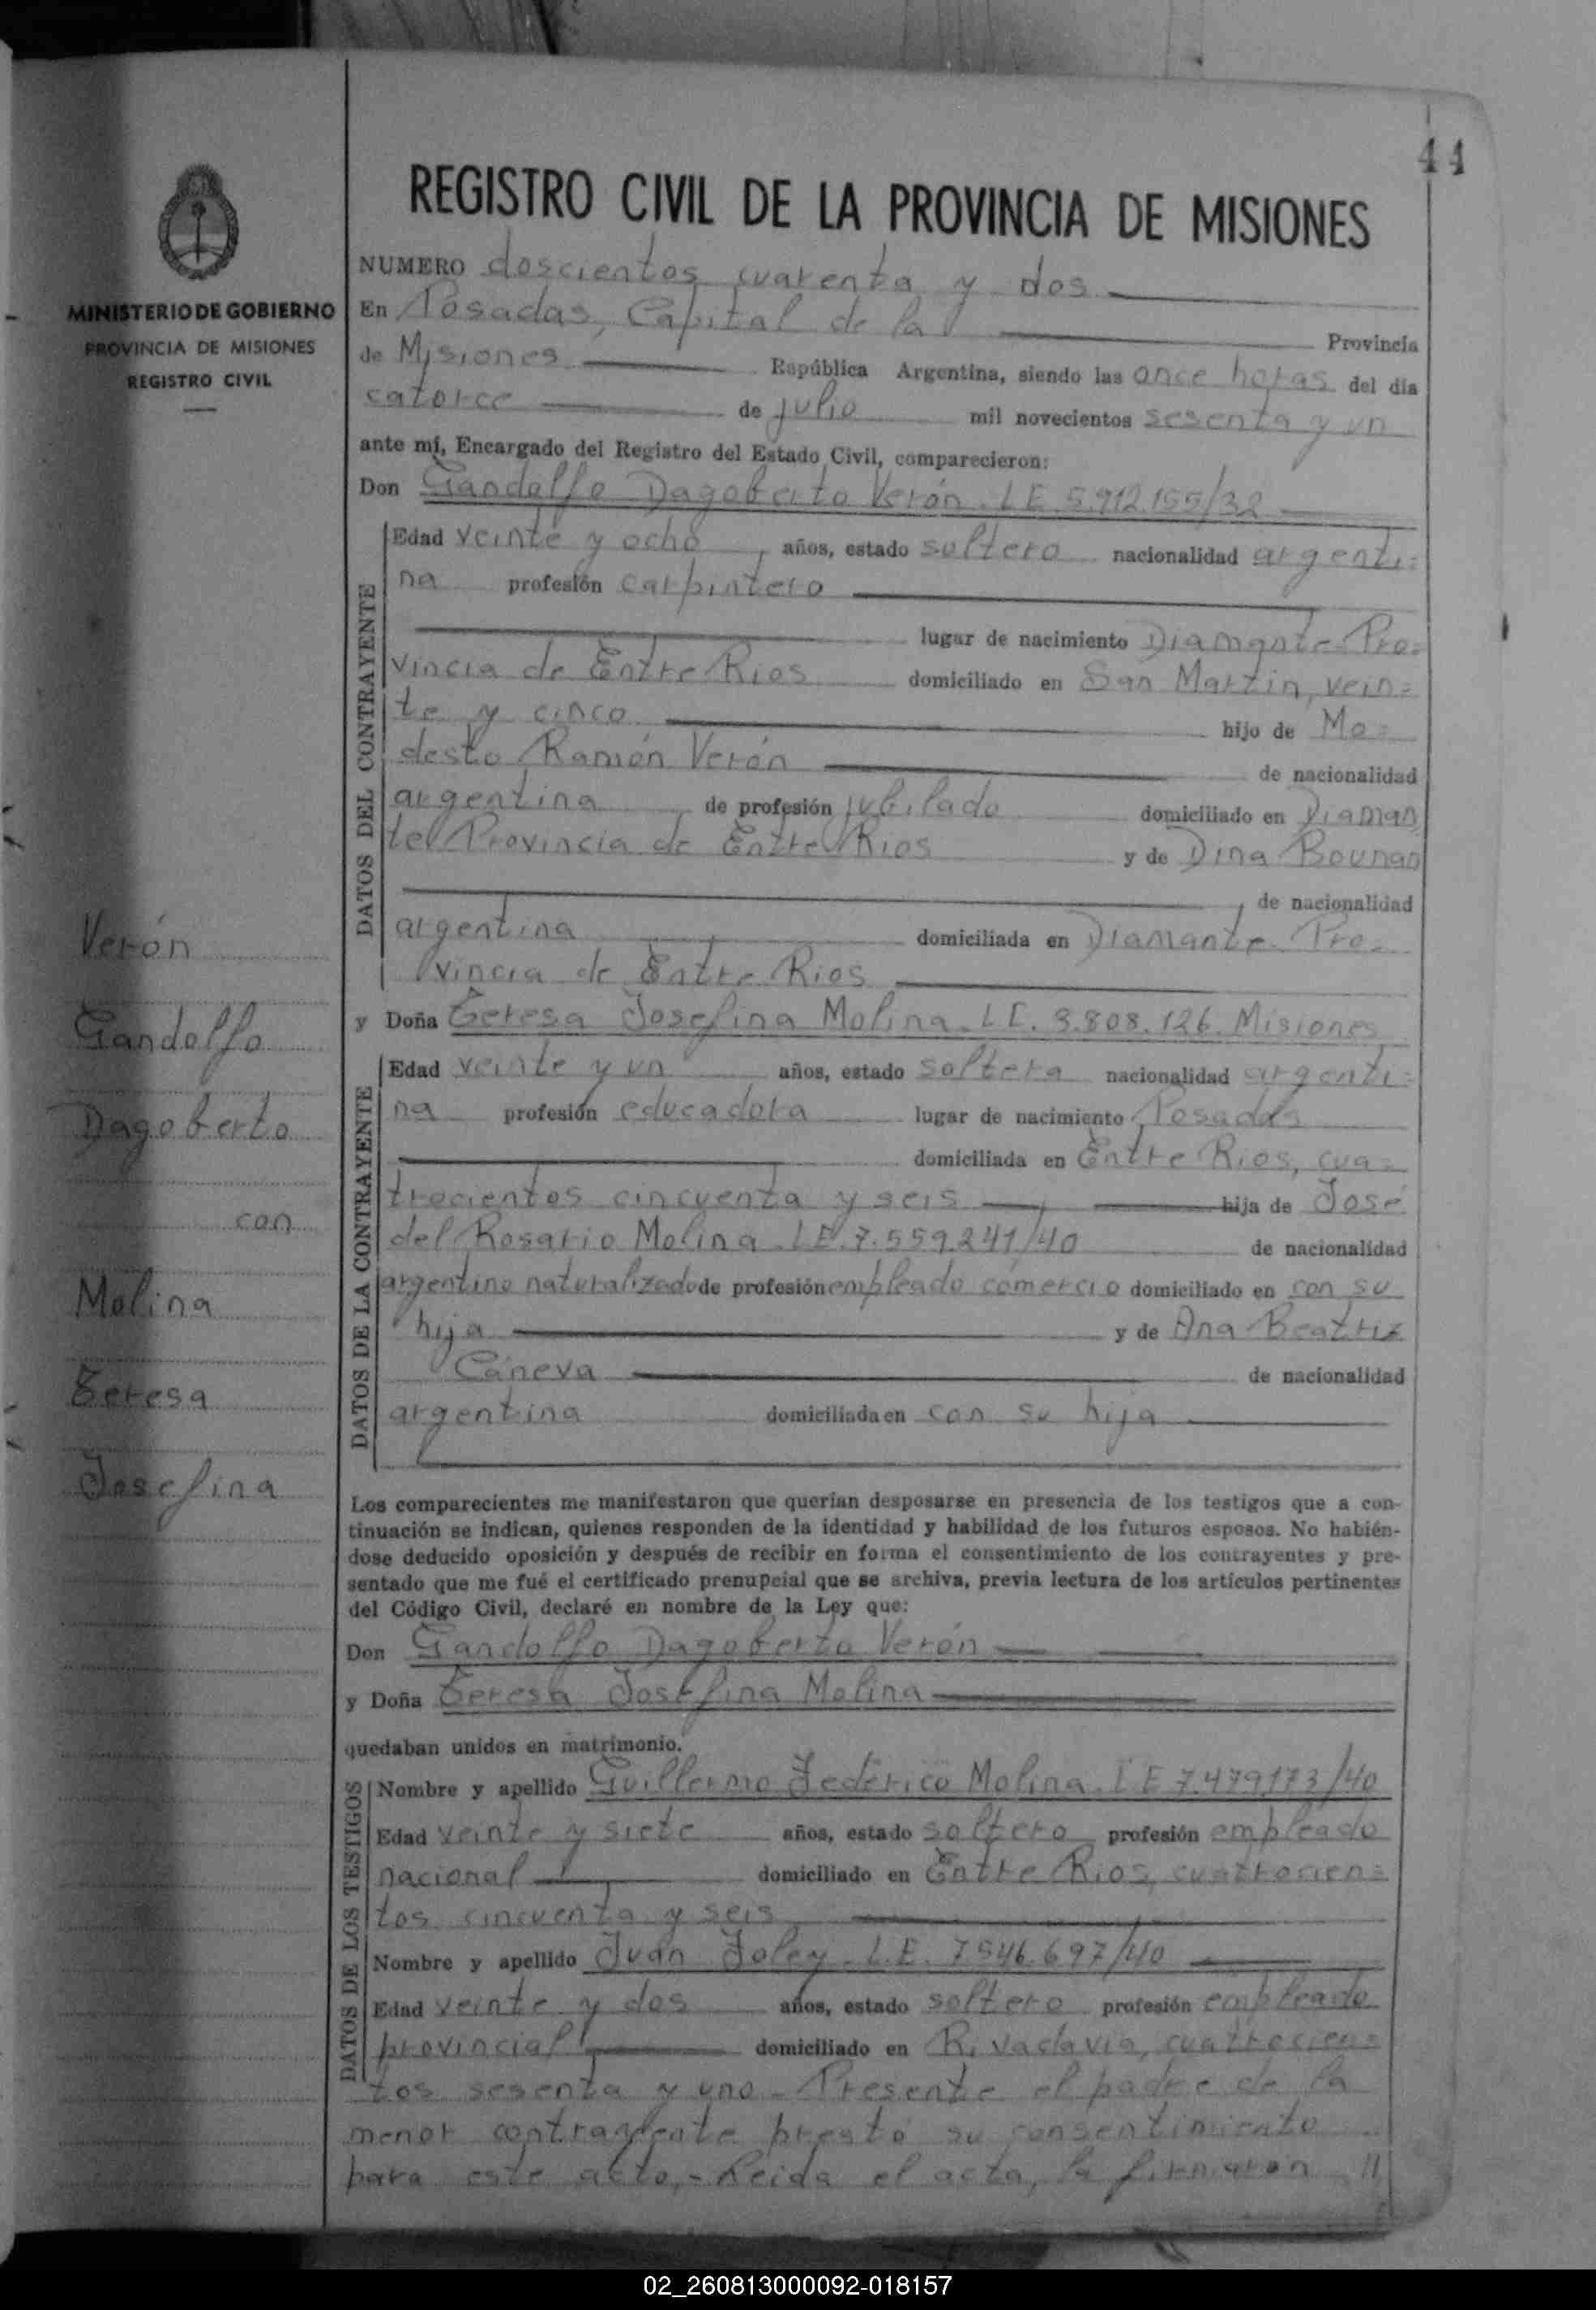 44
REGISTRO CIVIL DE LA PROVINCIA DE MISIONES
MINISTERIO DE GOBIERNO
PROVINCIA DE MISIONES
REGISTRO CIVIL
NUMERO doscientos cuarenta y dos
En Posadas, Capital de la Provincia
de Misiones República Argentina, siendo las once horas del día
catorce de julio mil novecientos sesenta y un
ante mí, Encargado del Registro del Estado Civil, comparecieron:
Don Gandolfo Dagoberto Verón. L E 5.912.155/32
DATOS DEL CONTRAYENTE
Edad veinte y ocho años, estado soltero nacionalidad argenti=
na profesión carpintero
lugar de nacimiento Diamante Pro=
vincia de Entre Rios domiciliado en San Martin, vein=
te y cinco hijo de Mo=
desto Ramón Verón de nacionalidad
argentina de profesión jubilado domiciliado en Diaman
te Provincia de Entre Rios y de Dina Bounan
de nacionalidad
argentina domiciliada en Diamante Pro=
vincia de Entre Rios
y Doña Teresa Josefina Molina. L C. 3.808.126. Misiones
DATOS DE LA CONTRAYENTE
Edad veinte y un años, estado soltera nacionalidad argenti=
na profesión educadora lugar de nacimiento Posadas
domiciliada en Entre Rios, cua=
trocientos cincuenta y seis hija de José
del Rosario Molina. L E. 7.559.241/40 de nacionalidad
argentino naturalizado de profesión empleado comercio domiciliado en con su
hija y de Ana Beatriz
Cáneva de nacionalidad
argentina domiciliada en con su hija
Los comparecientes me manifestaron que querían desposarse en presencia de los testigos que a con-
tinuación se indican, quienes responden de la identidad y habilidad de los futuros esposos. No habién-
dose deducido oposición y después de recibir en forma el consentimiento de los contrayentes y pre-
sentado que me fué el certificado prenupcial que se archiva, previa lectura de los artículos pertinentes
del Código Civil, declaré en nombre de la Ley que:
Don Gandolfo Dagoberto Verón
y Doña Teresa Josefina Molina
quedaban unidos en matrimonio.
DATOS DE LOS TESTIGOS
Nombre y apellido Guillermo Federico Molina. L E 7.479.173/40
Edad veinte y siete años, estado soltero profesión empleado
nacional domiciliado en Entre Rios, cuatrocien=
tos cincuenta y seis
Nombre y apellido Juan Foley L.E. 7546.697/40
Edad veinte y dos años, estado soltero profesión empleado
provincial domiciliado en Rivadavia, cuatrocien=
tos sesenta y uno - Presente el padre de la
menor contrayente prestó su consentimiento
para este acto,- Leida el acta, la firmaron //
Verón
Gandolfo
Dagoberto
con
Molina
Teresa
Josefina
02_260813000092-018157